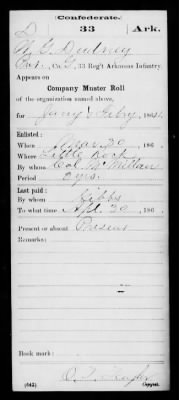 Confederate.
D 33 Ark.
Pvt., Co. G, 33 Reg't Arkansas Infantry.
Appears on
Company Muster Roll
of the organization named above,
for Jany & Feby, 1864.
Enlisted:
When Mar 30, 186 .
Where Little Rock
By whom Col. McMillan
Period 3 yrs.
Last paid:
By whom Gibbs
To what time Apl. 30, 186 .
Present or absent Present
Remarks:
Book mark:
(642) Copyist.